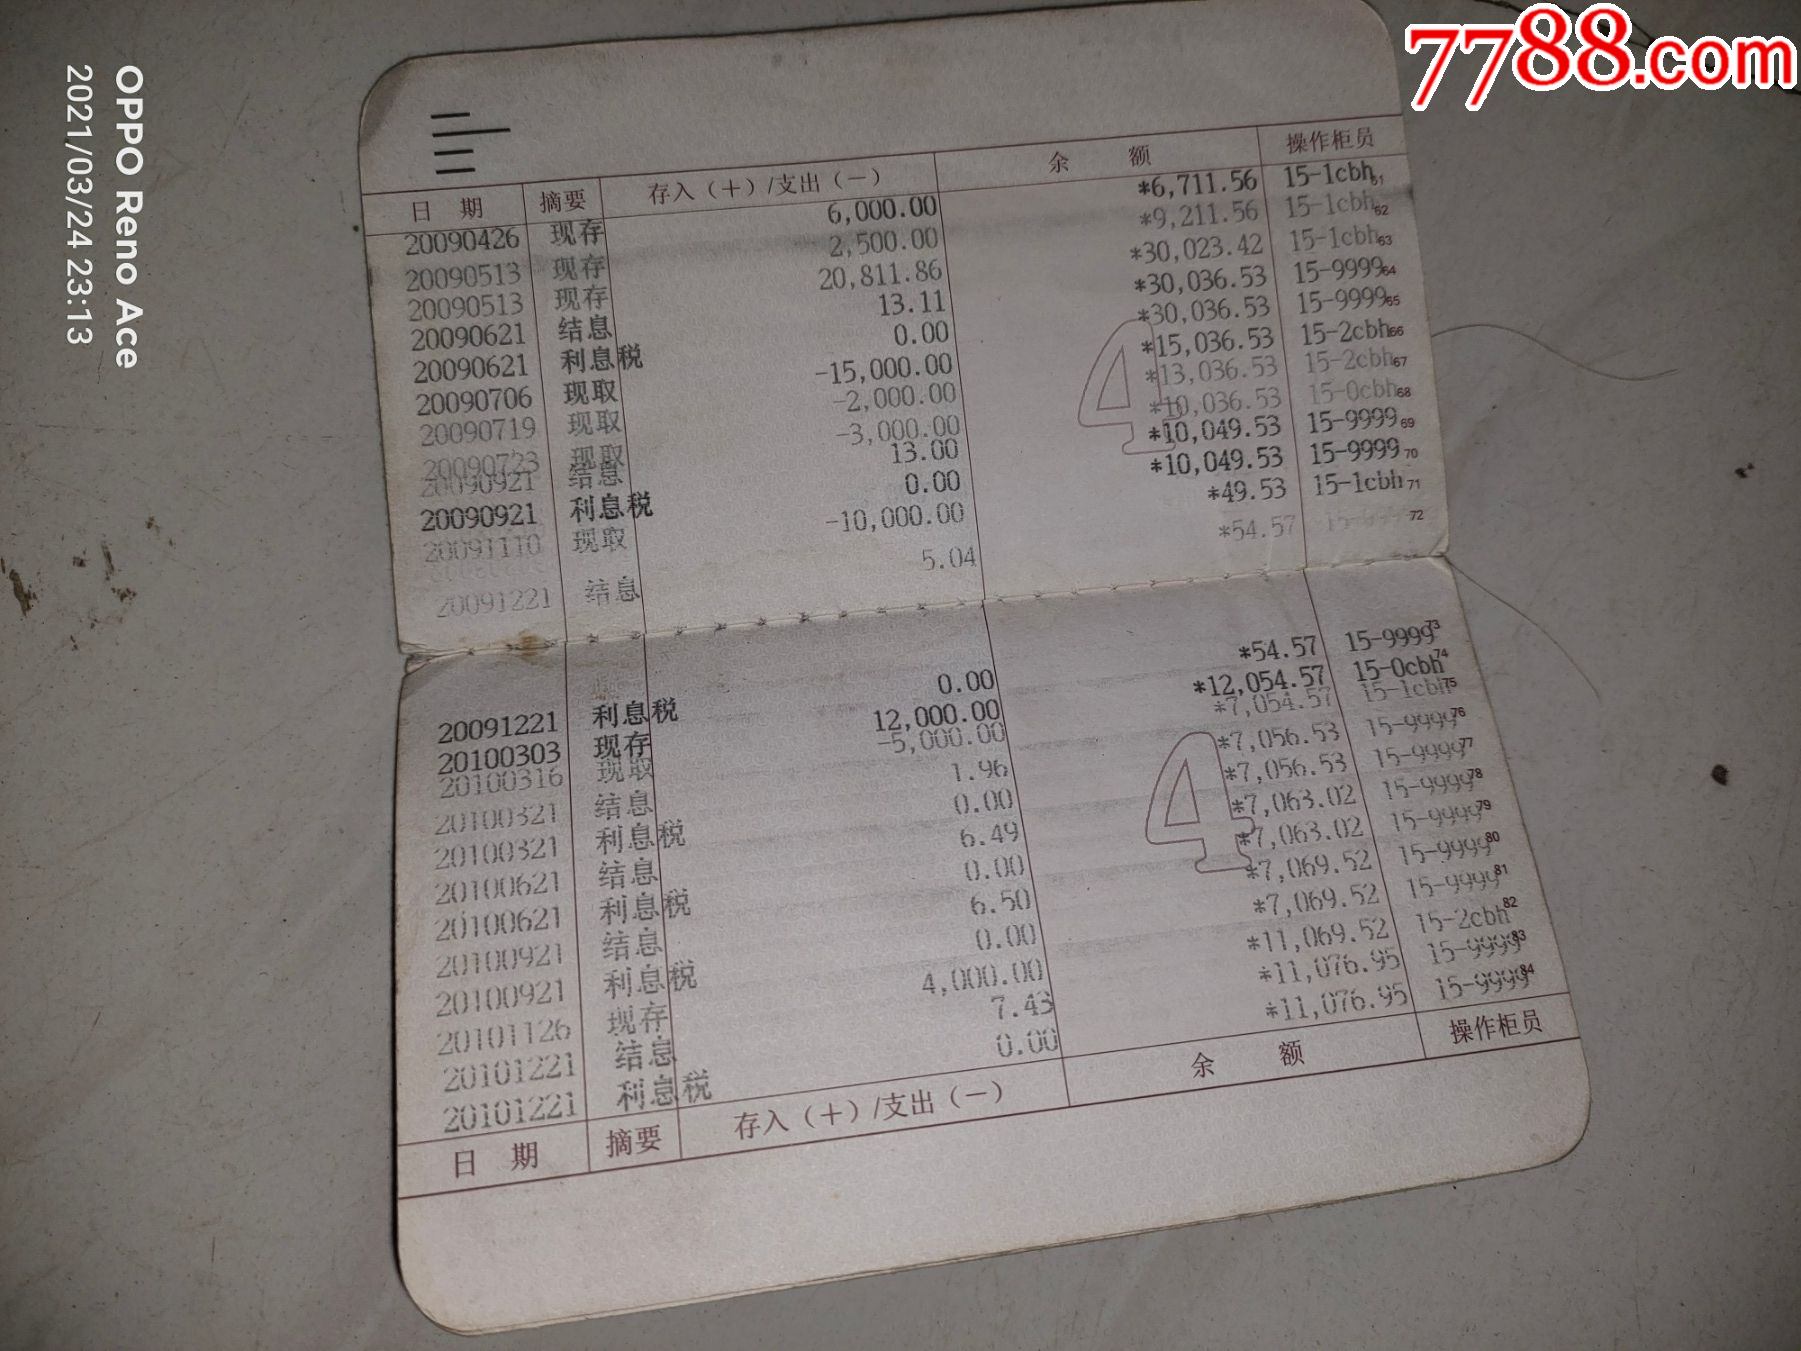 7788.com
OPPO Reno Ace
2021/03/24 23:13
日 期 摘要 存入(+)/支出(-) 余 额 操作柜员
20090426 现存 6,000.00 *6,711.56 15-1cbh 61
20090513 现存 2,500.00 *9,211.56 15-1cbh 62
20090513 现存 20,811.86 *30,023.42 15-1cbh 63
20090621 结息 13.11 *30,036.53 15-9999 64
20090621 利息税 0.00 *30,036.53 15-9999 65
20090706 现取 -15,000.00 *15,036.53 15-2cbh 66
20090719 现取 -2,000.00 *13,036.53 15-2cbh 67
20090723 现取 -3,000.00 *10,036.53 15-0cbh 68
20090921 结息 13.00 *10,049.53 15-9999 69
20090921 利息税 0.00 *10,049.53 15-9999 70
20091110 现取 -10,000.00 *49.53 15-1cbh 71
20091221 结息 5.04 *54.57 15-9999 72
4
20091221 利息税 0.00 *54.57 15-9999 73
20100303 现存 12,000.00 *12,054.57 15-0cbh 74
20100316 现取 -5,000.00 *7,054.57 15-1cbh 75
20100321 结息 1.96 *7,056.53 15-9999 76
20100321 利息税 0.00 *7,056.53 15-9999 77
20100621 结息 6.49 *7,063.02 15-9999 78
20100621 利息税 0.00 *7,063.02 15-9999 79
20100921 结息 6.50 *7,069.52 15-9999 80
20100921 利息税 0.00 *7,069.52 15-9999 81
20101126 现存 4,000.00 *11,069.52 15-2cbh 82
20101221 结息 7.43 *11,076.95 15-9999 83
20101221 利息税 0.00 *11,076.95 15-9999 84
4
日 期 摘要 存入(+)/支出(-) 余 额 操作柜员